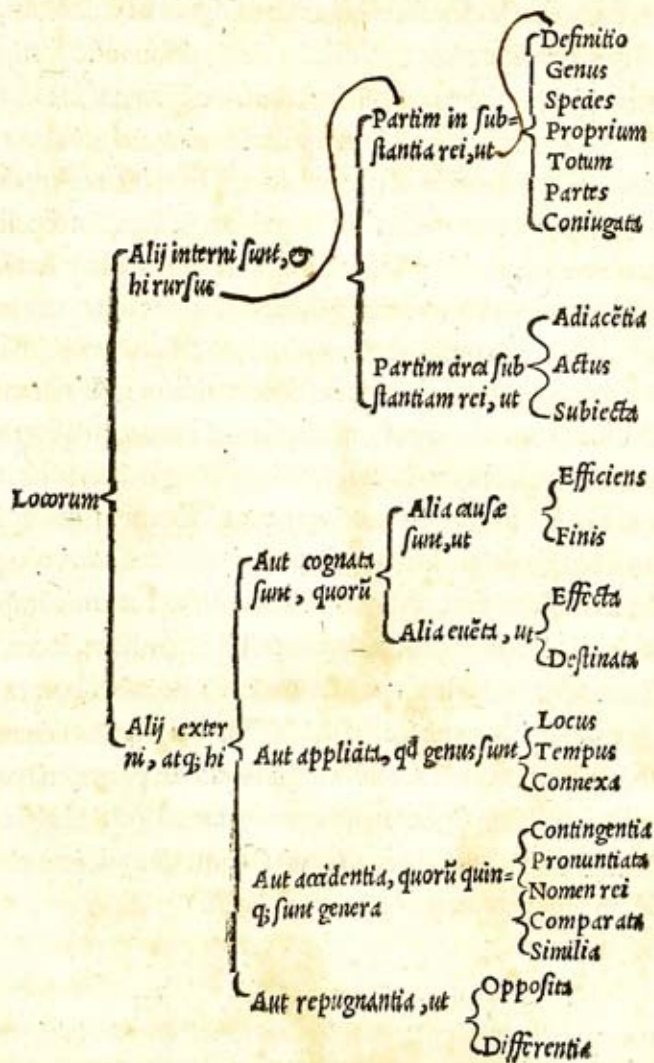 Locorum
Alij interni ſunt, &
hi rurſus
Partim in ſub=
ſtantia rei, ut
Definitio
Genus
Spedes
Proprium
Totum
Partes
Coniugata
Partim circa ſub
ſtantiam rei, ut
Adiacẽtia
Actus
Subiecta
Alij exter
ni, atq; hi
Aut cognata
ſunt, quorũ
Alia cauſæ
ſunt, ut
Efficiens
Finis
Alia euẽta, ut
Effecta
Deſtinata
Aut applicita, qđ genus ſunt
Locus
Tempus
Connexa
Aut accidentia, quorũ quin=
q; ſunt genera
Contingentia
Pronuntiata
Nomen rei
Comparata
Similia
Aut repugnantia, ut
Oppoſita
Differentia